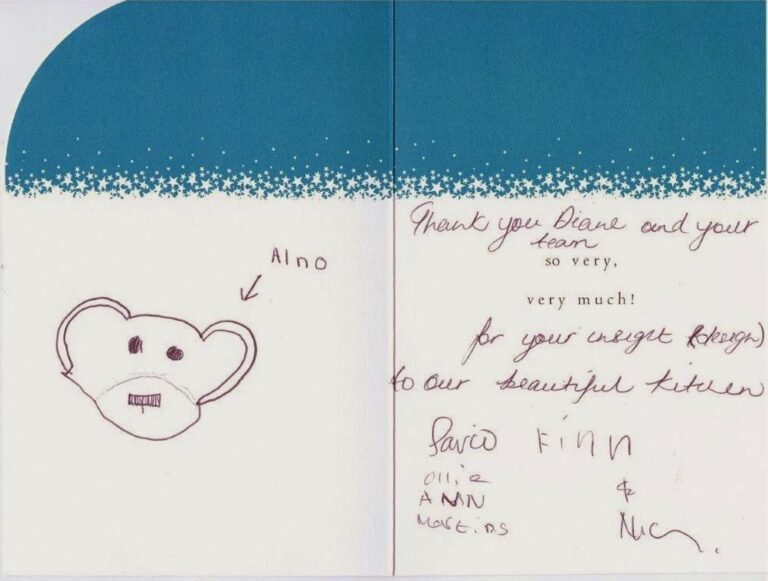 Alno
Thank you Diane and your
team
so very,
very much!
for your insight (design)
to our beautiful kitchen
Finn
Ollie
&